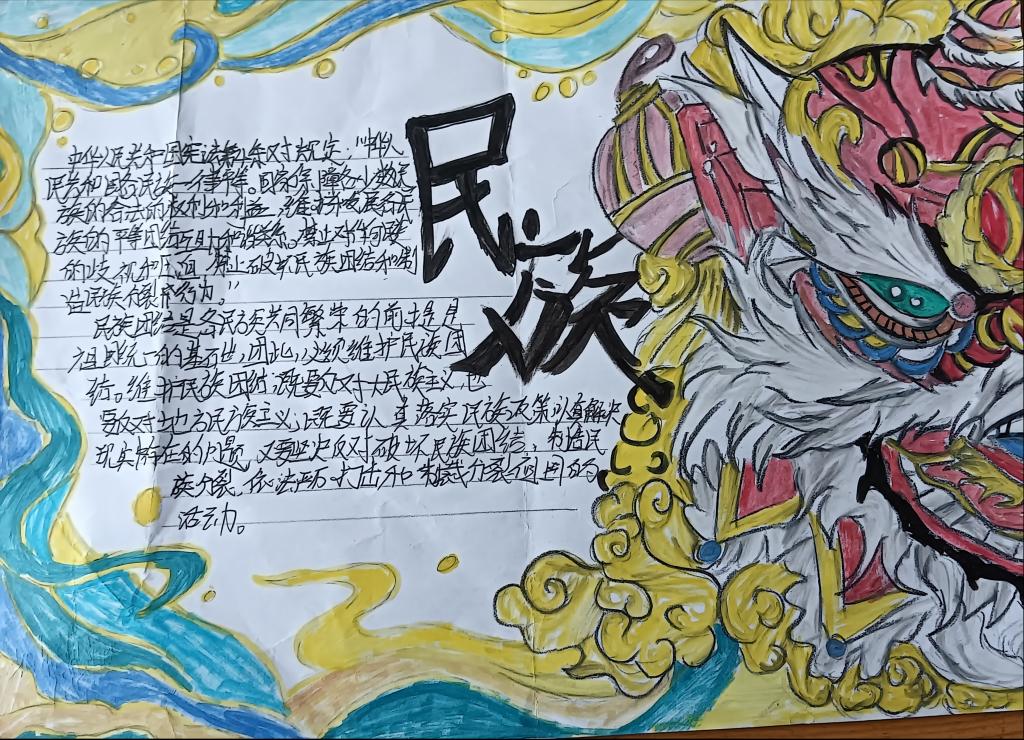 民族
中华人民共和国宪法第4条对规定："中华人
民共和国各民族一律平等。国家保障各少数民
族的合法的权利和利益，维护和发展各民
族的平等团结互助和谐关系。禁止对任何民族
的歧视和压迫，禁止破坏民族团结和制
造民族分裂的行为。"
民族团结是各民族共同繁荣的前提是
祖国统一的基石也，因此，必须维护民族团
结。维护民族团结，既要反对大民族主义，也
要反对地方民族主义，既要认真落实民族政策，认真解决
现实存在的问题，又要坚决反对破坏民族团结，制造民
族分裂，依法严厉打击和制裁分裂祖国的
活动。